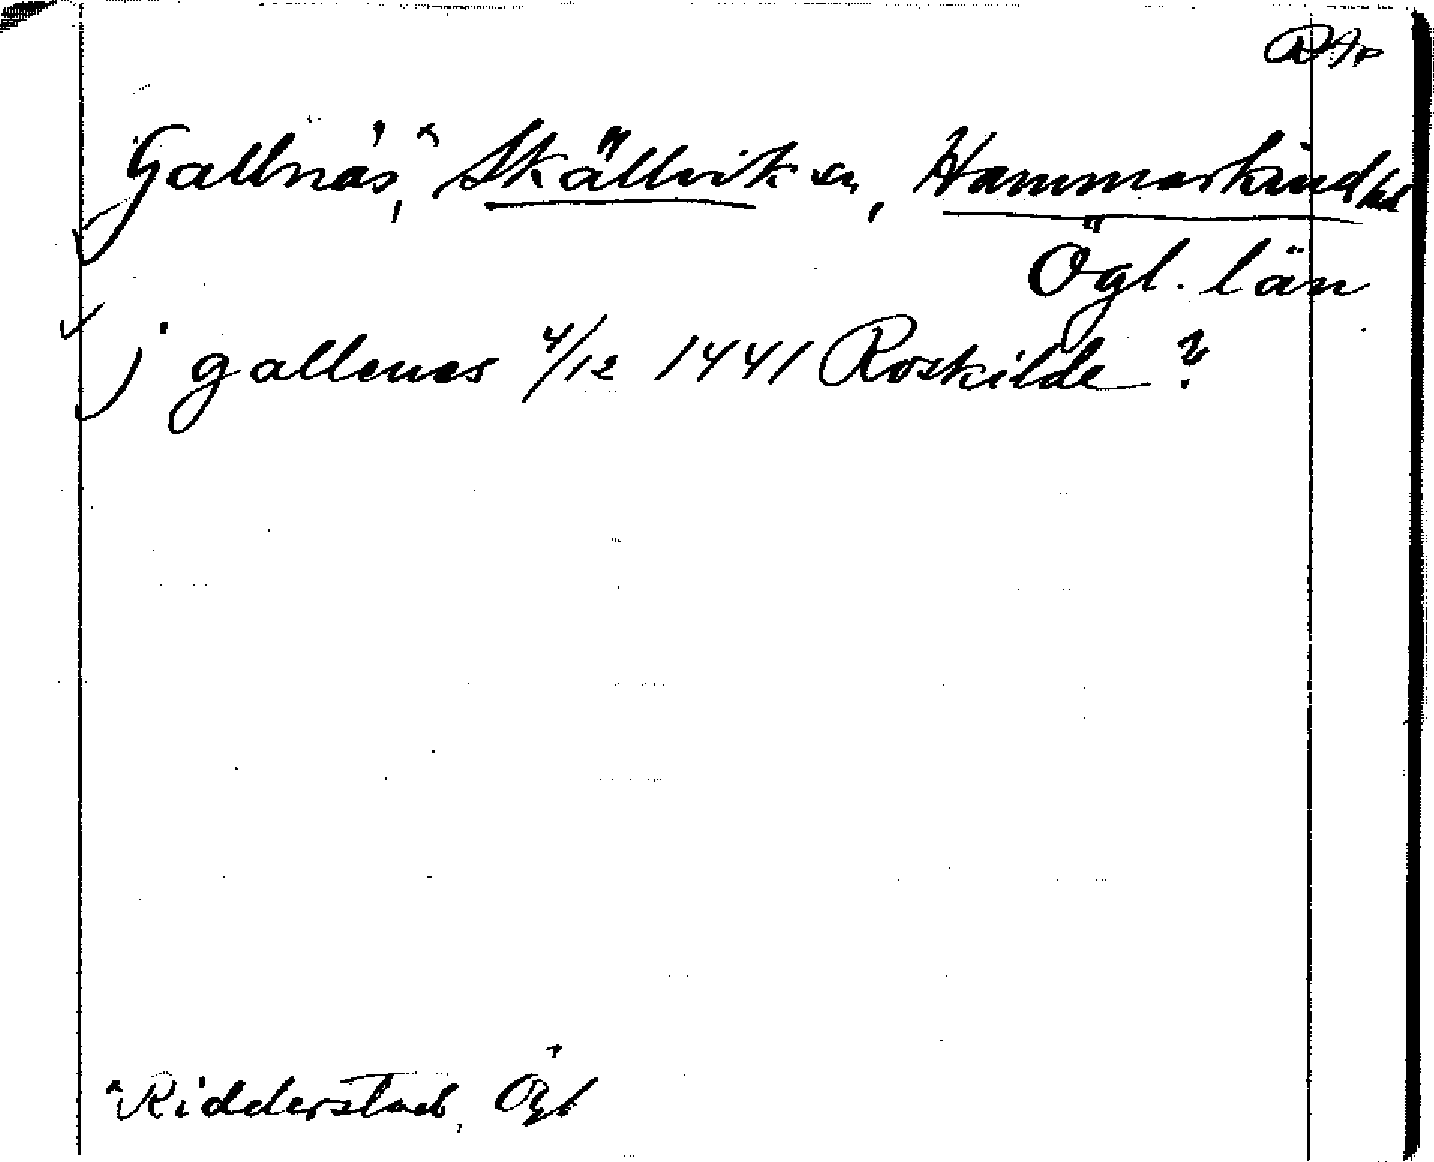 RAp
Gallnäs, Skällvik sn, Hammarkind hd
Ögl. län
j gallenes 4/12 1441 Roskilde ?
Ridderstad, Ögl